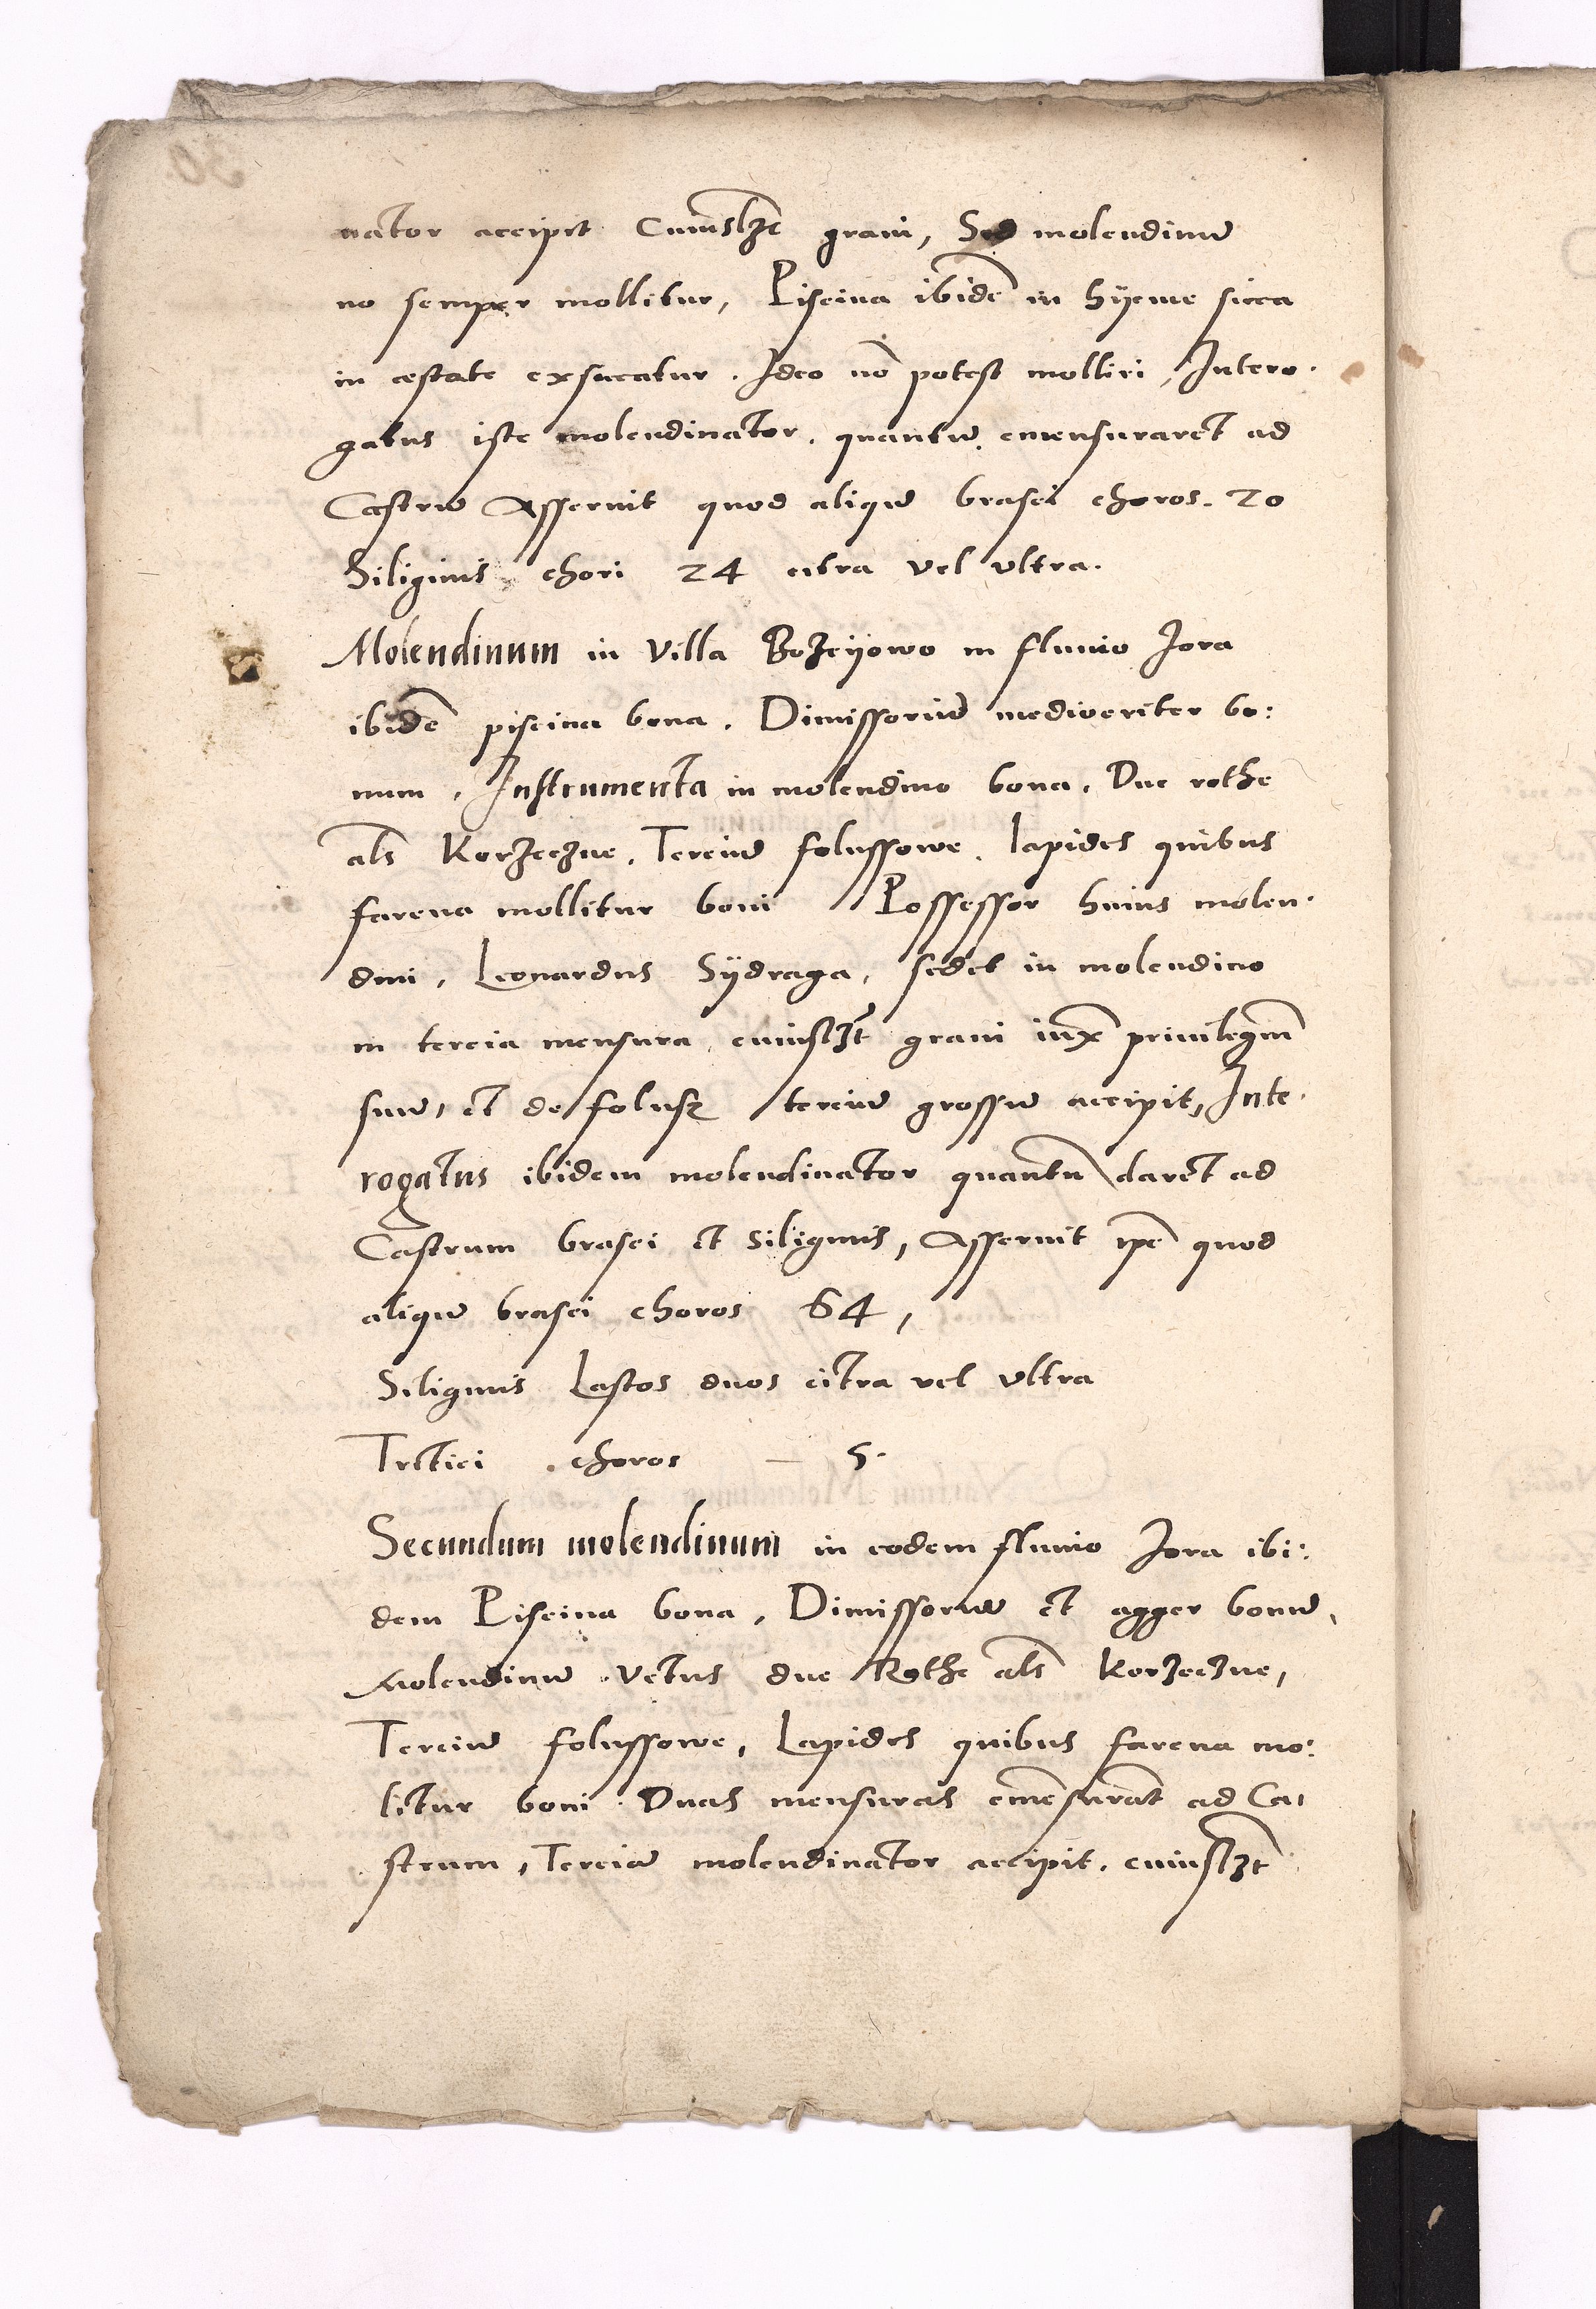 nator accipit Cuiuslʒt grani, Sed molendinū
nō semper mollitur, Piscina ibidē in hÿeme sicca
in æstate exsiccatur. Ideo nō potest molliri, Intero.
gatus iste molendinator. quantū emensuraret ad
Castrū Asseruit quod aliqū brasei choros. 20
Siliginis chori 24 citra vel ultra.
Molendinum in Villa Bozeÿowo in fluuio Jora
ibidē piscina bona. Dimissoriū mediocriter bo:
num. Instrumenta in molendino bona. Due rothe
als Korzeczne. Terciū folussowe. Lapides quibus
farena mollitur boni Possessor huius molen.
dini, Leonardus Sÿdraga, sedet in molendino
in tercia mensura cuiuslʒt grani iuxͣ priuilegiū
suū, et de folusz terciū grossū accipit, Inte.
rogatus ibidem molendinator quantū daret ad
Castrum brasei et siliginis, Asseruit ipē quod
aliqū brasei choros 64,
Siliginis Lastos duos citra vel ultra
Tritici choros — 5.
Secundum molendinum in eodem fluuio Jora ibi:
dem Piscina bona, Dimissoriū et agger bonū,
Molendinū vetus due Rothe als Korzeczne,
Terciū folussowe, Lapides quibus farena mo:
litur boni. Duas mensuras emēsurāt ad Ca,
strum, Terciā molendinator accipit. cuiuslʒt